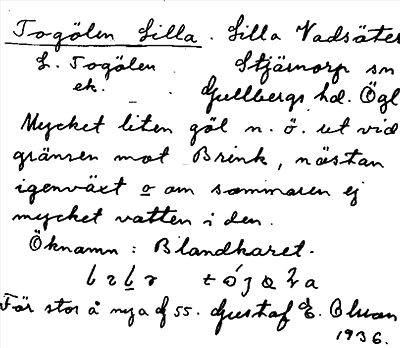 Togölen Lilla. Lilla Vadsäter
L. Togölen Stjärnorp sn
ek. Gullbergs hd. Ögl
Mycket liten göl n. ö. ut vid
gränsen mot Brink, nästan
igenväxt o om sommaren ej
mycket vatten i den.
Öknamn: Blandkaret.
För stor å nya 55. Gustaf E. Olsson
1936.